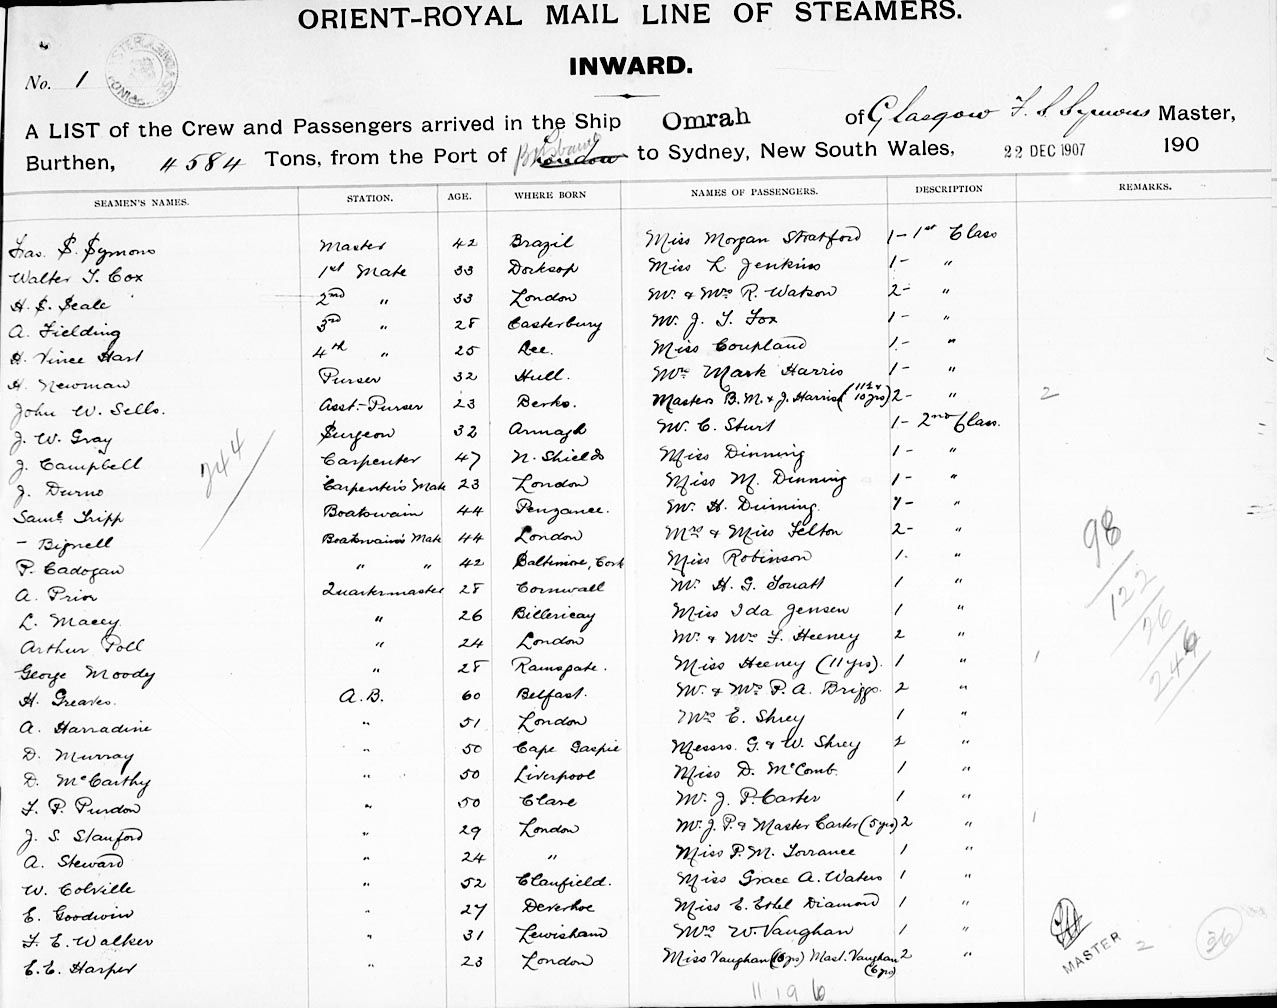 ORIENT-ROYAL MAIL LINE OF STEAMERS.
INWARD.
No. 1
A LIST of the Crew and Passengers arrived in the Ship Omrah of Glasgow F. S. Symons Master,
Burthen, 4584 Tons, from the Port of London Brisbane to Sydney, New South Wales, 22 DEC 1907 190
SEAMEN'S NAMES. STATION. AGE. WHERE BORN NAMES OF PASSENGERS. DESCRIPTION REMARKS.
Fras. S. Symons Master 42 Brazil Miss Morgan Stratford 1- 1st Class
Walter T. Cox 1st Mate 33 Worksop Miss L. Jenkins 1- "
H. S. Seale 2nd " 33 London Mr. & Mrs R. Watson 2- "
A. Fielding 3rd " 28 Casterbury Mr. J. T. Fox 1- "
H. Vince Hart 4th " 25 Lee. Miss Coupland 1- "
H. Newman Purser 32 Hull. Mrs Mark Harris 1- "
John W. Sells. Asst.-Purser 23 Berks. Masters B. M. & J. Harris (11 & 10 yrs) 2- " 2
J. W. Gray Surgeon 32 Armagh Mr. C. Sturt 1- 2nd Class.
J. Campbell Carpenter 47 N. Shields Miss Dinning 1- "
J. Durno Carpenter's Mate 23 London Miss M. Dinning 1- "
Saml. Tripp Boatswain 44 Penzance. Mr. H. Dinning 1- "
- Bignell Boatswain's Mate 44 London Mrs & Miss Felton 2- "
P. Cadogan " " 42 Baltimore, Cork Miss Robinson 1. "
A. Prior Quartermaster 28 Cornwall Mr. H. G. 1 "
L. Macey " 26 Billericay Miss Ida Jensen 1 "
Arthur Poll " 24 London Mr. & Mrs F. Heeney 2 "
George Moody " 28 Ramsgate. Miss Heeney (11 yrs). 1 "
H. Greaves. A.B. 60 Belfast. Mr. & Mrs P. A. Briggs. 2 "
A. Harradine " 51 London Mrs E. Shrey 1 "
D. Murray " 50 Cape Gaspie Messrs. G. & W. Shrey 2 "
D. McCarthy " 50 Liverpool Miss D. McComb. 1 "
F. P. Purdon " 50 Clare Mr. J. P. Carter 1 "
J. S. Stanford " 29 London Mr. J. P. & Master Carter (5 yrs) 2 "
A. Steward " 24 " Miss P. M. Torrance 1 "
W. Colville " 52 Clanfield. Miss Grace A. Waters 1 "
E. Goodwin " 27 Miss E. Ethel Diamond 1 "
F. E. Walker " 31 Lewisham Mrs W Vaughan 1 "
E. E. Harper " 23 London Miss Vaughan Mast. Vaughan (6 yrs) 2 "
244
98
122
26
246
MASTER
2
26